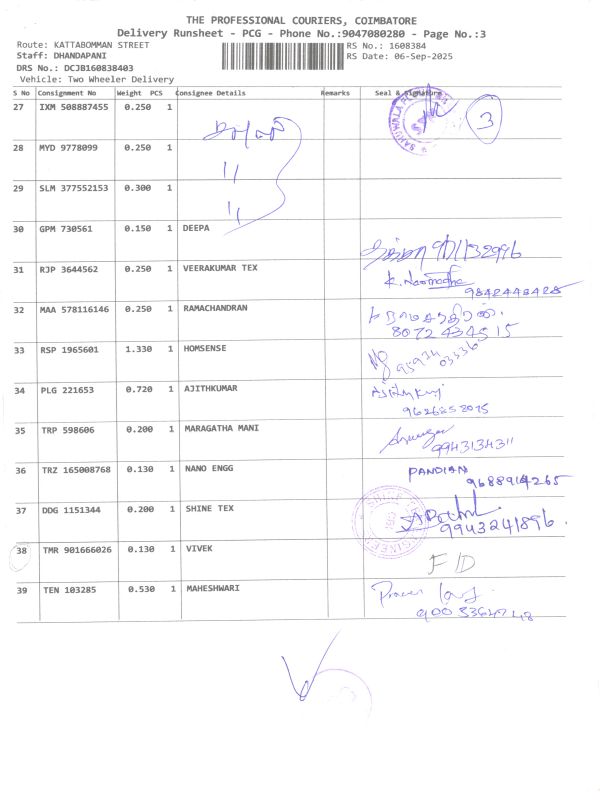 THE PROFESSIONAL COURIERS, COIMBATORE
Delivery Runsheet - PCG - Phone No.:9047080280 - Page No.:3
Route: KATTABOMMAN STREET RS No.: 1608384
Staff: DHANDAPANI RS Date: 06-Sep-2025
DRS No.: DCJB160838403
Vehicle: Two Wheeler Delivery
S No Consignment No Weight PCS Consignee Details Remarks Seal & Signature
27 IXM 508887455 0.250 1 3
28 MYD 9778099 0.250 1 "
29 SLM 377552153 0.300 1 "
30 GPM 730561 0.150 1 DEEPA
31 RJP 3644562 0.250 1 VEERAKUMAR TEX
9842448428
32 MAA 578116146 0.250 1 RAMACHANDRAN
8072434515
33 RSP 1965601 1.330 1 HOMSENSE
34 PLG 221653 0.720 1 AJITHKUMAR
35 TRP 598606 0.200 1 MARAGATHA MANI
9943134311
36 TRZ 165008768 0.130 1 NANO ENGG PANDIAN
9688914265
37 DDG 1151344 0.200 1 SHINE TEX
9943241896.
38 TMR 901666026 0.130 1 VIVEK F/D
39 TEN 103285 0.530 1 MAHESHWARI